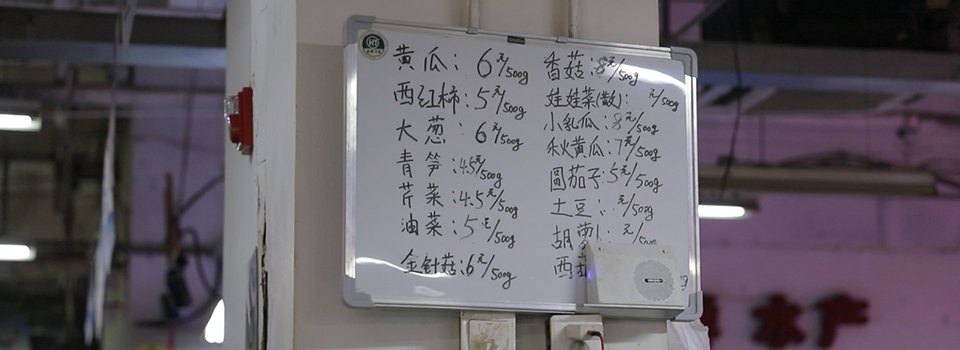 黄瓜：6元/500g
西红柿：5元/500g
大葱：6元/500g
青笋：4.5元/500g
芹菜：4.5元/500g
油菜：5元/500g
金针菇：6元/500g
香菇：8元/500g
娃娃菜(散)： 元/500g
小乳瓜：8元/500g
秋黄瓜：7元/500g
圆茄子：5元/500g
土豆： 元/500g
胡萝卜： 元/500g
西
水产